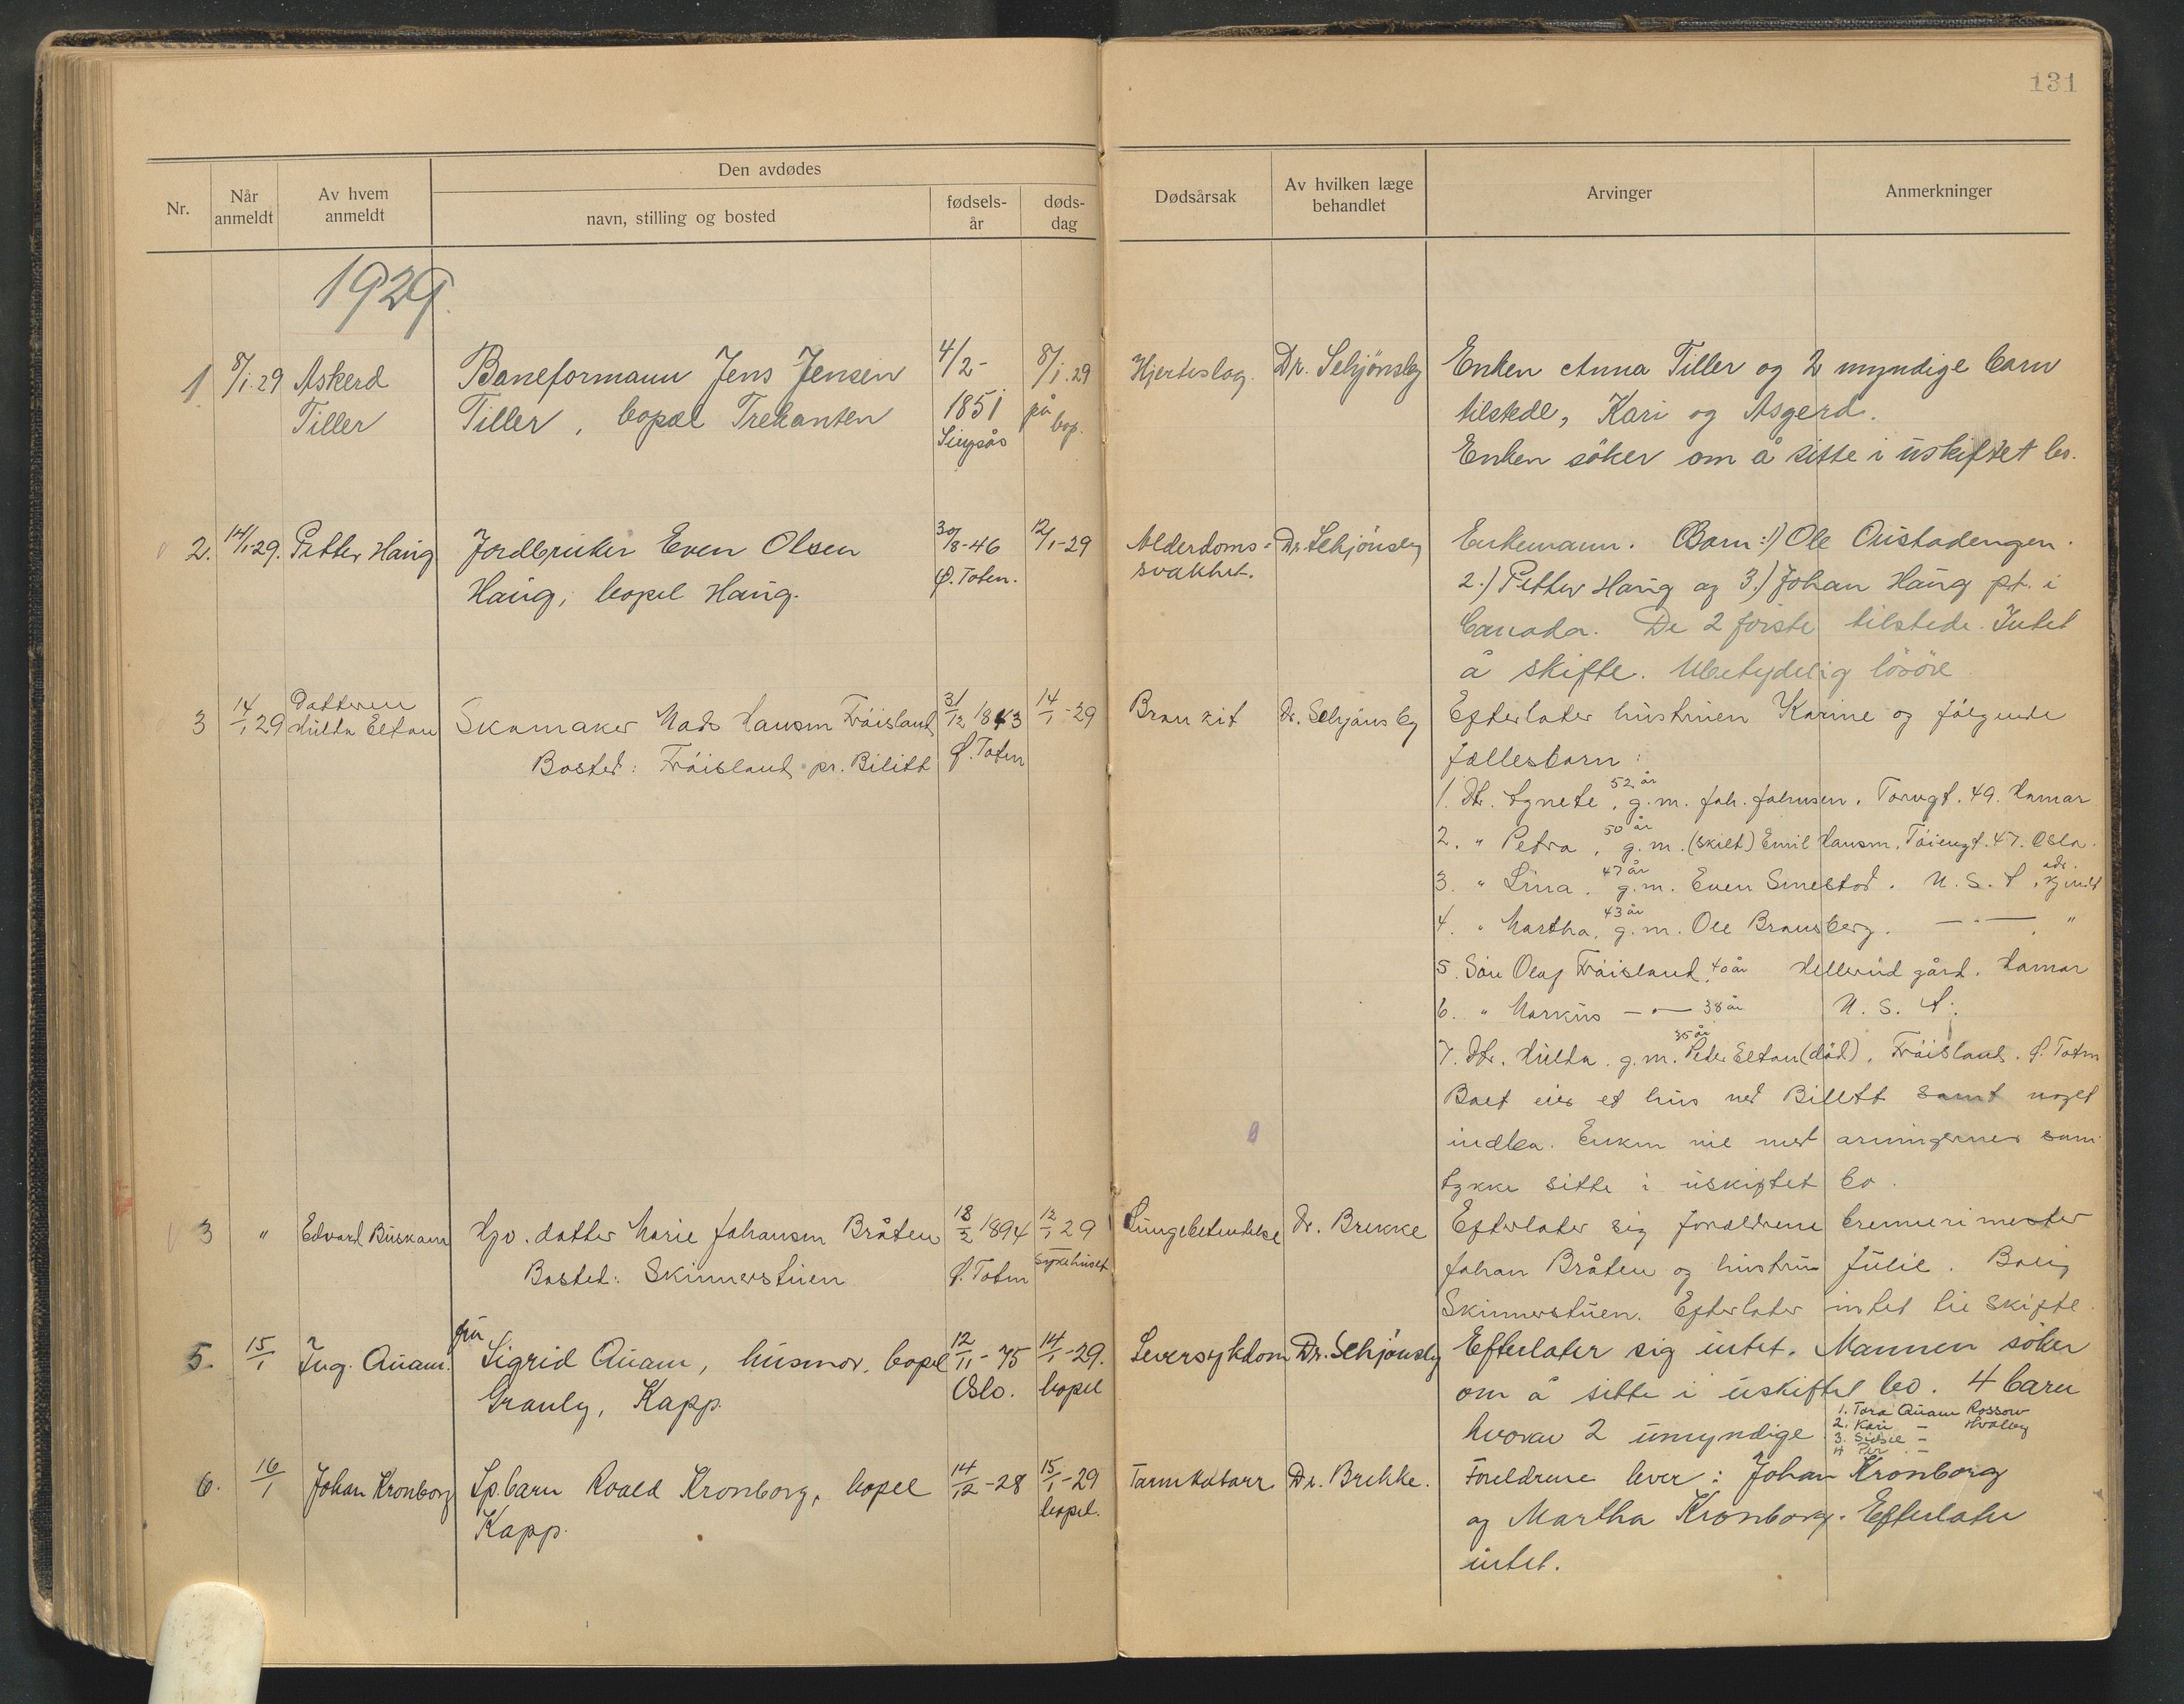 131
Den avdødes
Nr.
Når anmeldt
Av hvem anmeldt
navn, stilling og bosted
fødsels-år
døds-dag
Dødsårsak
Av hvilken læge behandlet
Arvinger
Anmerkninger
1929.
1 8/1.29 Askerd Baneformann Jens Jensen 4/2- 8/1.29 Hjerteslag. Dr. Schjønsby Enken Anna Tiller og 2 myndige barn
Tiller Tiller, bopæl Trekanten 1851 på bop. tilstede, Kari og Asgerd.
Singsås Enken søker om å sitte i uskiftet bo.
2. 14/1-29. Petter Haug Jordbruker Even Olsen 30/8-46 12/1-29 Alderdoms- Dr. Schjønsby Enkemann. Barn: 1) Ole Austadengen.
Haug, bopel Haug. Ø. Toten. svakhet. 2.) Petter Haug og 3.) Johan Haug pt. i
Canada. De 2 første tilstede. Intet
å skifte. Ubetydelig løsøre
3 14/1 29 Datteren Hulda Eltan Skomaker Mads Hansen Frøisland 31/12 1843 14/1-29 Bronkit Dr. Schjønsby Efterlater hustruen Karine og følgende
Bosted: Frøisland pr. Bilitt Ø. Toten fællesbarn:
1. Dtr. Agnete, 52 år g.m. Joh. Johnsen. Torvgt. 49. Hamar
2. " Petra, 50 år g.m. (skilt) Emil Hansen. Tøiengt. 47. Oslo.
3. " Lina. 47 år g.m. Even Smestad. U.S.A. adr. kjendt
4. " Martha. 43 år g.m. Ole Bransberg. — " — "
5. Søn Olaf Frøisland. 40 år Hellerud gård. Hamar
6. " Markus — " — 38 år U.S.A.
7. Dtr. Hulda. g.m. 35 år Peder Eltan (død). Frøisland. Ø. Toten
Boet eier et hus ved Bilitt samt noget
indbo. Enken vil med arvingernes sam-
tykke sitte i uskiftet bo.
3 " Edvard Buskam Hjv. datter Marie Johansen Bråten 18/2 1894 12/1 29 Lungebetendelse Dr. Brekke Efterlater sig forældrene brennerimester
Bosted: Skinnerstuen Ø. Toten sykehuset Johan Bråten og hustru Julie. Bolig
Skinnerstuen. Efterlater intet til skifte.
5. 15/1 Ing. Quam. fru Sigrid Quam, husmor, bopel 12/11-75 14/1-29. Leversykdom Dr. Schjønsby Efterlater sig intet. Mannen søker
Granly, Kapp. Oslo. bopel om å sitte i uskiftet bo. 4 barn
hvorav 2 umyndige
1. Tora Quam Rossow
2. Kari — Hvalby
3. Sidsel —
4 Per —
6. 16/1 Johan Kronborg Sp.barn Roald Kronborg, bopel 14/12-28 15/1-29 Tarmkatarr Dr. Brekke. Foreldrene lever: Johan Kronborg
Kapp. bopel. og Martha Kronborg. Efterlater
intet.